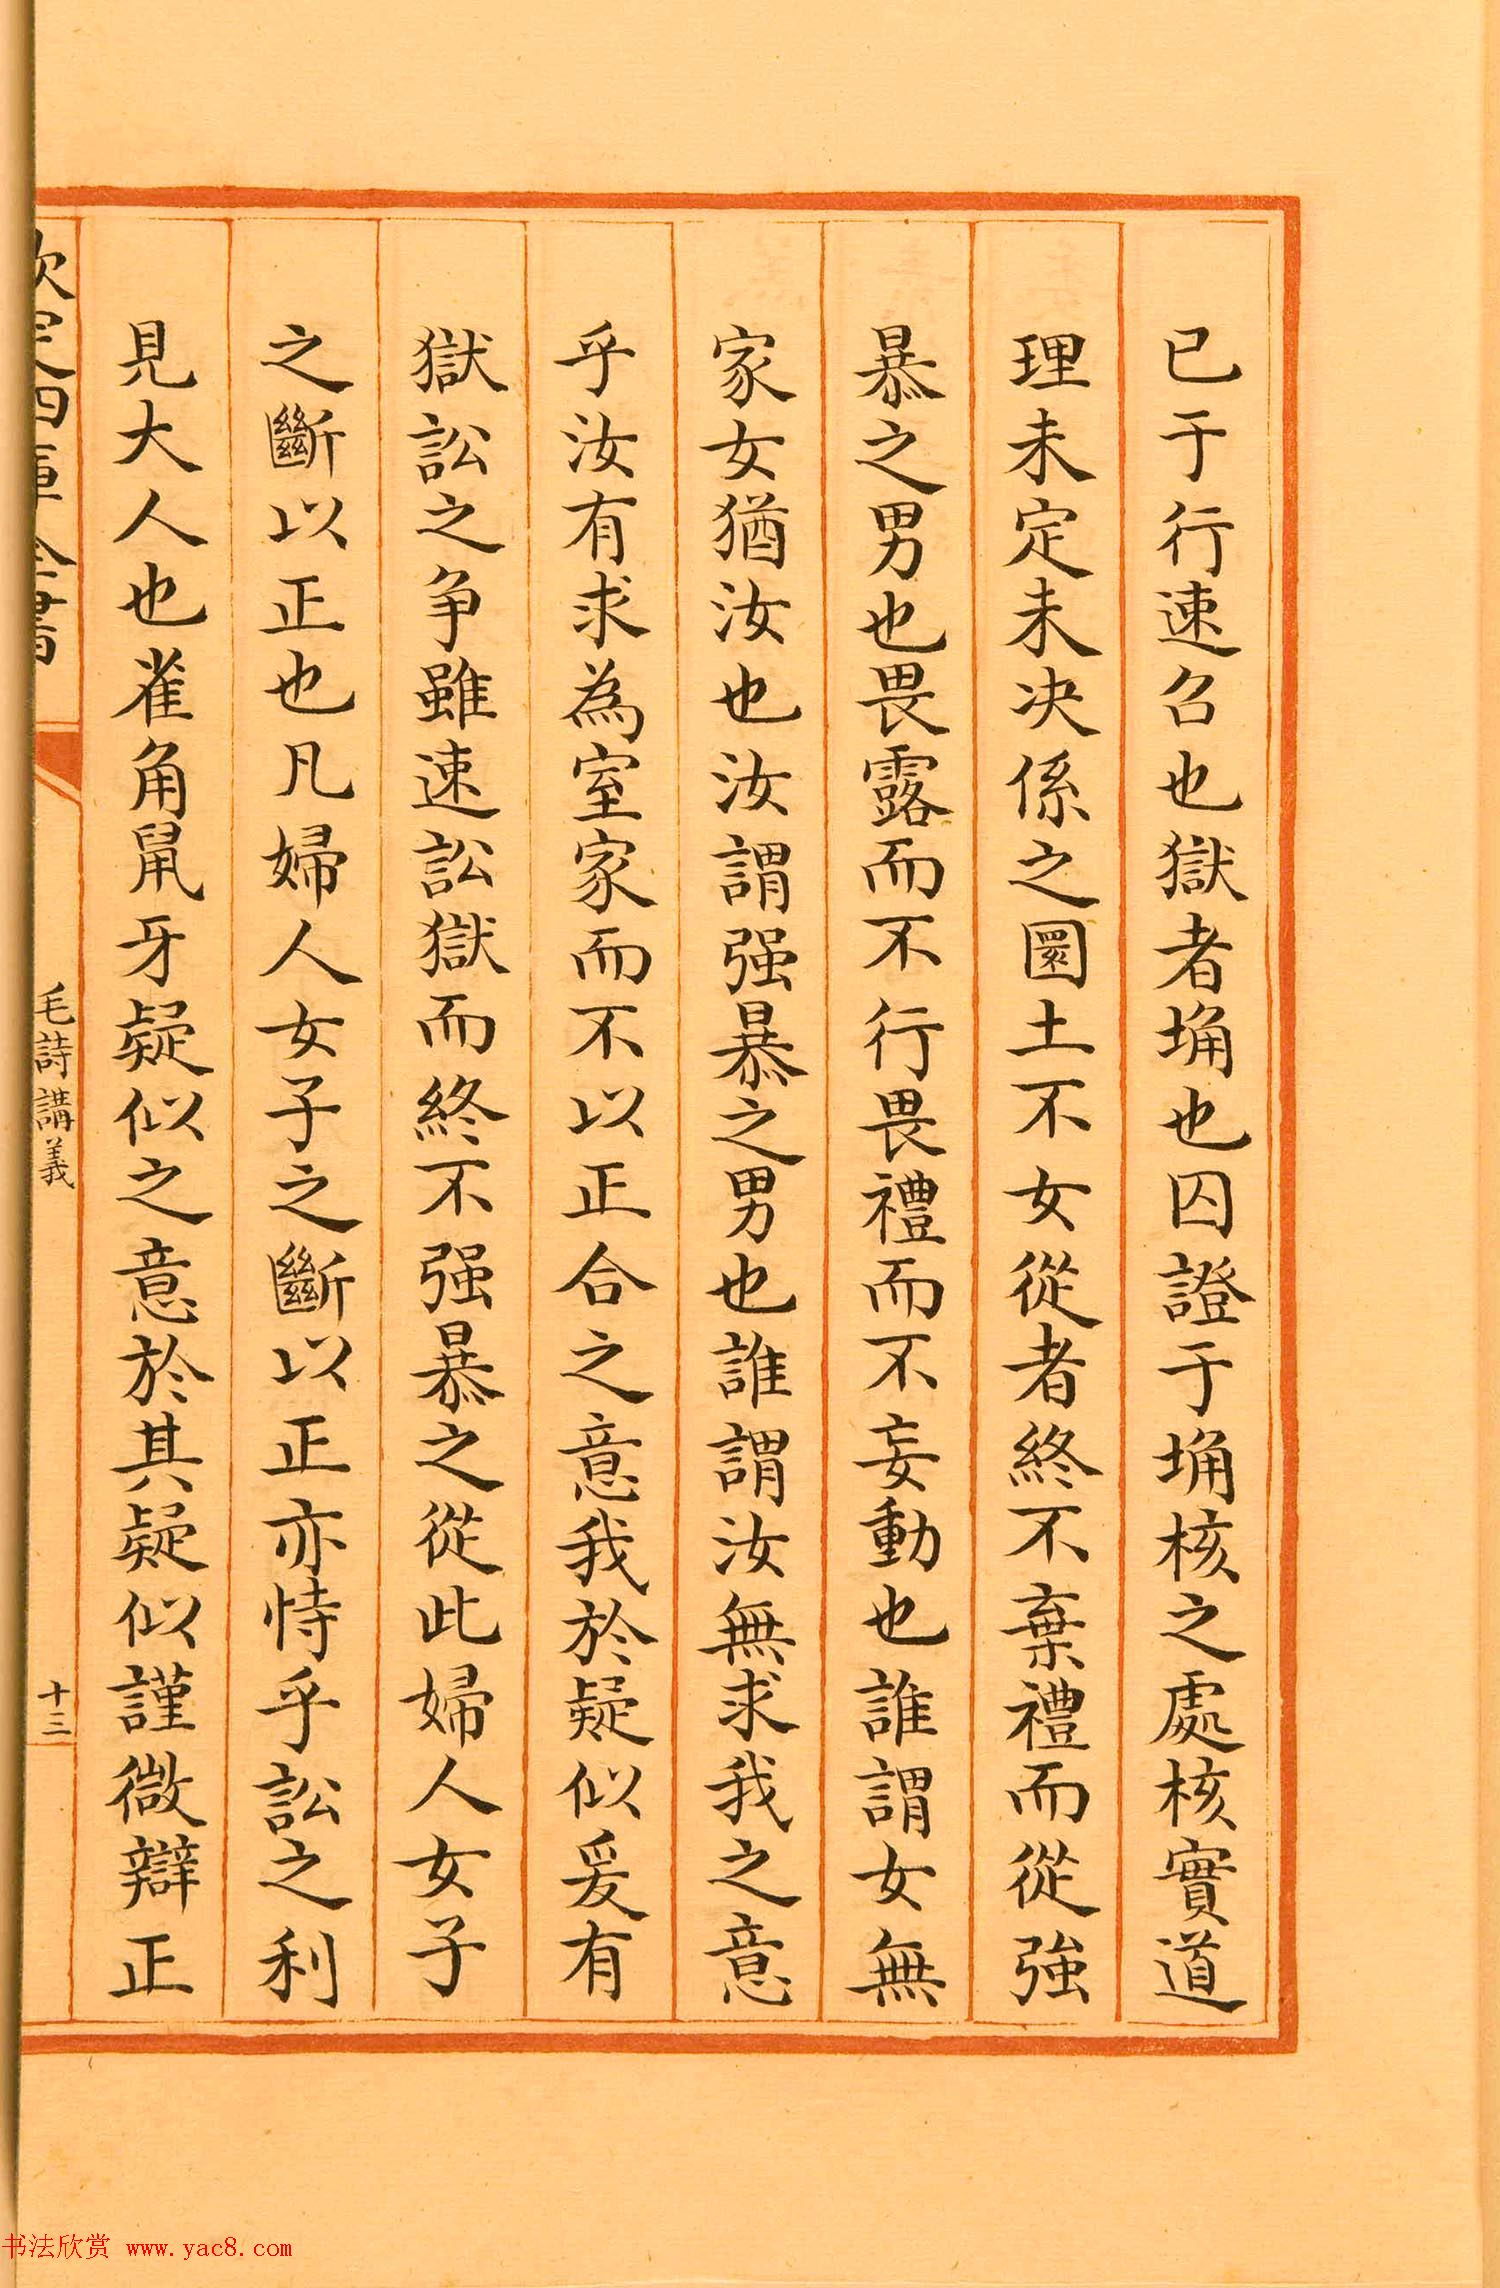 已于行速召也獄者埆也囚證于埆核之處核實道
理未定未决係之圜土不女從者終不棄禮而從強
暴之男也畏露而不行畏禮而不妄動也誰謂女無
家女猶汝也汝謂强暴之男也誰謂汝無求我之意
乎汝有求為室家而不以正合之意我於疑似爰有
獄訟之爭雖速訟獄而終不强暴之從此婦人女子
之斷以正也凡婦人女子之斷以正亦恃乎訟之利
見大人也雀角鼠牙疑似之意於其疑似謹微辯正
欽定四庫全書
毛詩講義
十三
书法欣赏 www.yac8.com